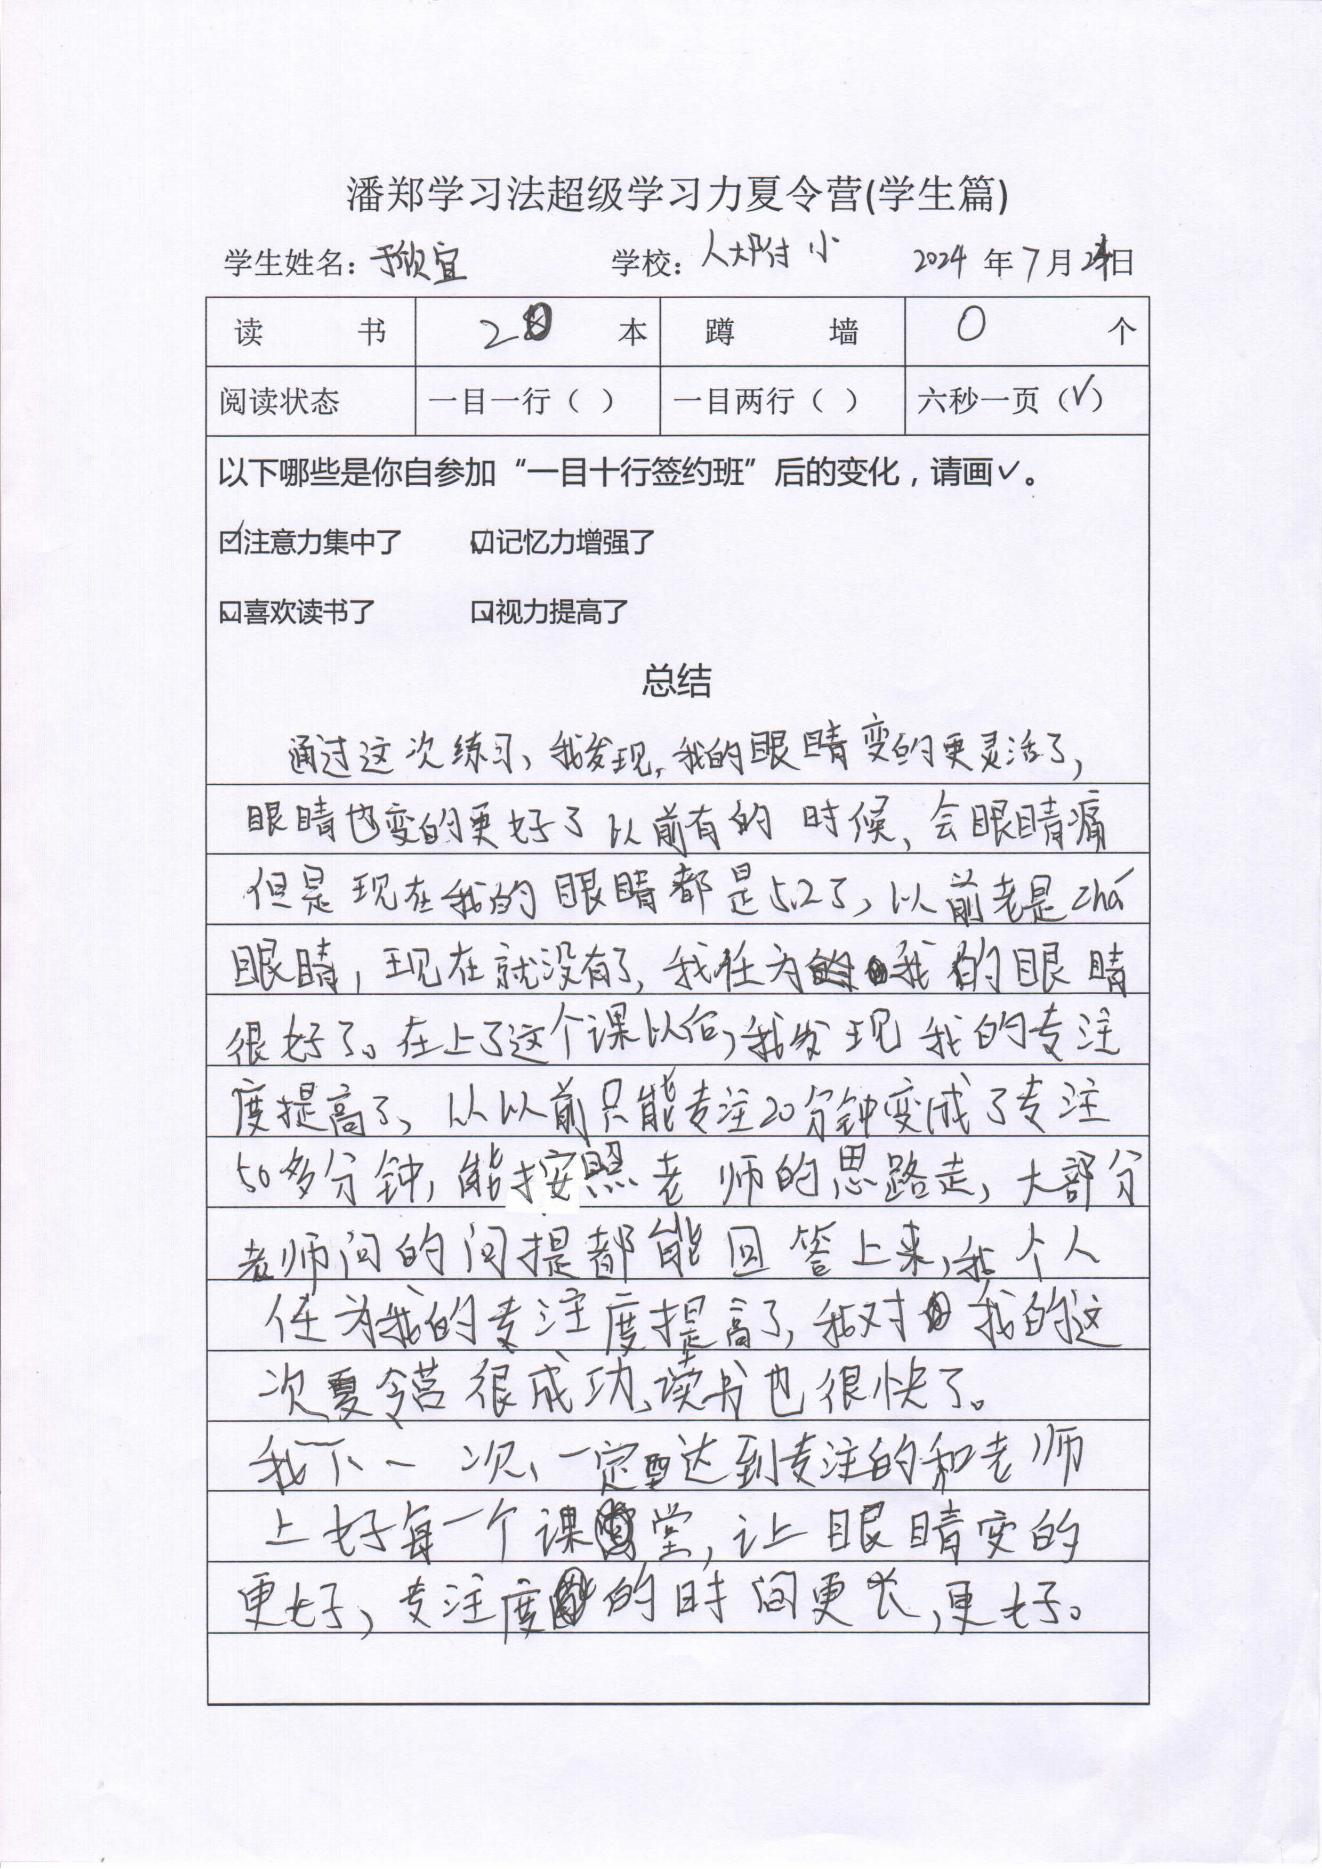 潘郑学习法超级学习力夏令营(学生篇)
学生姓名：于欣宜 学校：人大附小 2024 年 7 月 日
读 书 20 本 蹲 墙 0 个
阅读状态 一目一行（ ） 一目两行（ ） 六秒一页（✓）
以下哪些是你自参加“一目十行签约班”后的变化，请画✓。
☑注意力集中了 ☑记忆力增强了
☑喜欢读书了 ☑视力提高了
总结
通过这次练习、我发现，我的眼睛变的更灵活了，
眼睛也变的更好了以前有的时候，会眼睛痛
但是现在我的眼睛都是5.2了，以前老是zhá
眼睛，现在就没有了，我任为我的眼睛
很好了。在上了这个课以后，我发现我的专注
度提高了，从以前只能专注20分钟变成了专注
50多分钟，能按照老师的思路走，大部分
老师问的问提都能回答上来，我个人
任为我的专注度提高了，我对我的这
次夏令营很成功，读书也很快了。
我下一次、一定要达到专注的和老师
上好每一个课堂，让眼睛变的
更好，专注度的时间更长，更好。